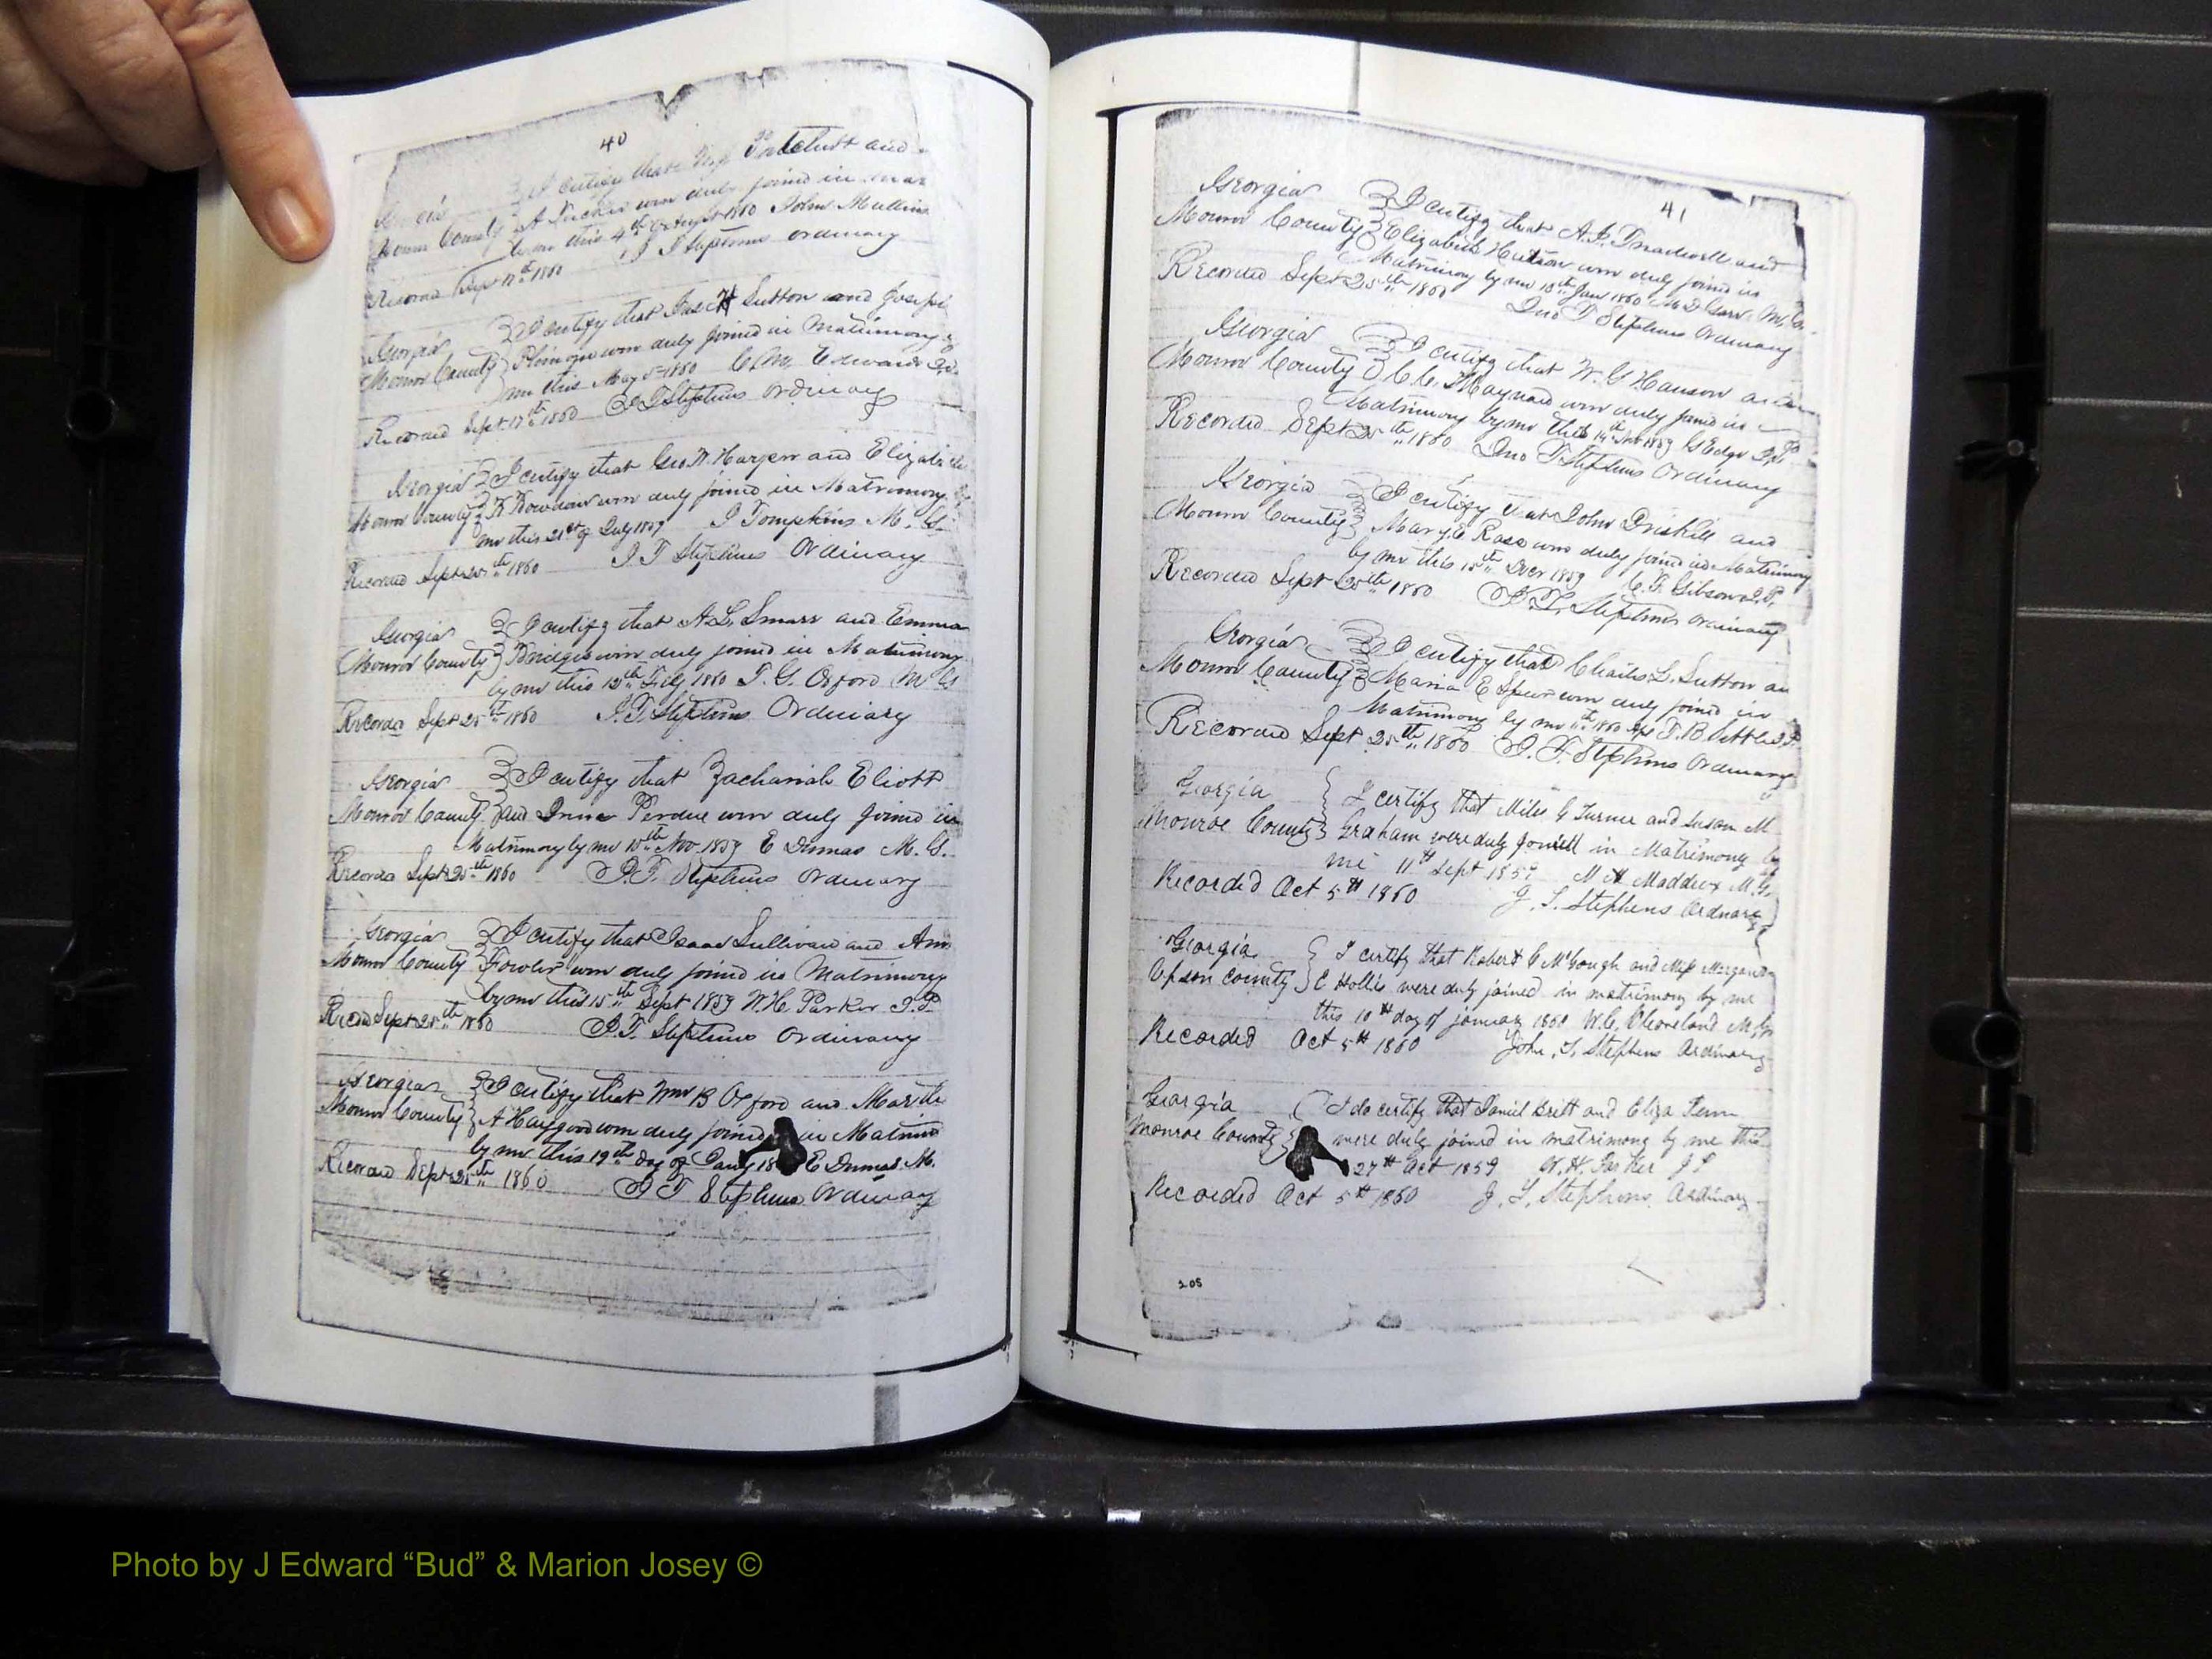 40
I certify that and
A Tucker were duly joined in mar
County this 4th of August 1860 John Mullins
J T Stephens Ordinary
Recorded Sept 17th 1860
Georgia I certify that Sutton and Joseph
Monroe County were duly joined in Matrimony by
me this May 5 1860 C. M. Edwards
Recorded Sept 17th 1860 J T Stephens Ordinary
Georgia I certify that Geo. W. and Elizabeth
Monroe County were duly joined in Matrimony by
me this 21st of July 1859 J Tompkins M. G.
Recorded Sept 25th 1860 J T Stephens Ordinary
Georgia I certify that A. L. Smarr and Emma
Monroe County Bridges were duly joined in Matrimony
by me this 12th 1860 T. G. Oxford M G
Recorded Sept 25th 1860 J. T. Stephens Ordinary
Georgia I certify that Zachariah Eliott
Monroe County and Perdue were duly joined in
Matrimony by me 15th Nov 1859 E Dumas M. G.
Recorded Sept 25th 1860 J. T. Stephens Ordinary
Georgia I certify that Isaac Sullivan and Ann
Monroe County Fowler were duly joined in Matrimony
by me this 15th Sept 1859 W. H. Parker J. P.
Recd Sept 25th 1860 J. T. Stephens Ordinary
Georgia I certify that Wm B Oxford and Martha
Monroe County A Haygood were duly joined in Matrimo
by me this 19th day of Jany 18 E Dumas M.
Recorded Sept 25th 1860 J T Stephens Ordinary
41
Georgia I certify that A. J. Treadwell and
Monroe County Elizabeth were duly joined in
Matrimony by me 15th Jany 1860
Recorded Sept 25th 1860 Jno T Stephens Ordinary
Georgia I certify that W. G. Hanson and
Monroe County Maynard were duly joined in
Matrimony by me this 14th 1859 G Edge J. P.
Recorded Sept 25th 1860 Jno T Stephens Ordinary
Georgia I certify that John Driskill and
Monroe County Mary E Rose were duly joined in Matrimony
by me this 15th 1859 C. F. Gibson J. P.
Recorded Sept 25th 1860 J. T. Stephens Ordinary
Georgia I certify that Charles L. Sutton an
Monroe County Maria E Speer were duly joined in
Matrimony by me 1860 T. B. Settle J. P.
Recorded Sept 25th 1860 J. T. Stephens Ordinary
Georgia I certify that Miles G Turner and Susan M
Monroe County Graham were duly joined in Matrimony by
me 11th Sept 1859 Maddox M. G.
Recorded Oct 5th 1860 J. T. Stephens Ordnary
Georgia I certify that Robert C McGough and Miss
Upson County E Hollis were duly joined in matrimony by me
this 10th day of January 1860 W. C. Cleveland M. G.
Recorded Oct 5th 1860 John. T. Stephens Ordinary
Georgia I do certify that Daniel Britt and Eliza
Monroe County were duly joined in matrimony by me this
27th Oct 1859 W. H. Parker J P
Recorded Oct 5th 1860 J. T. Stephens Ordinary
205
Photo by J Edward “Bud” & Marion Josey ©